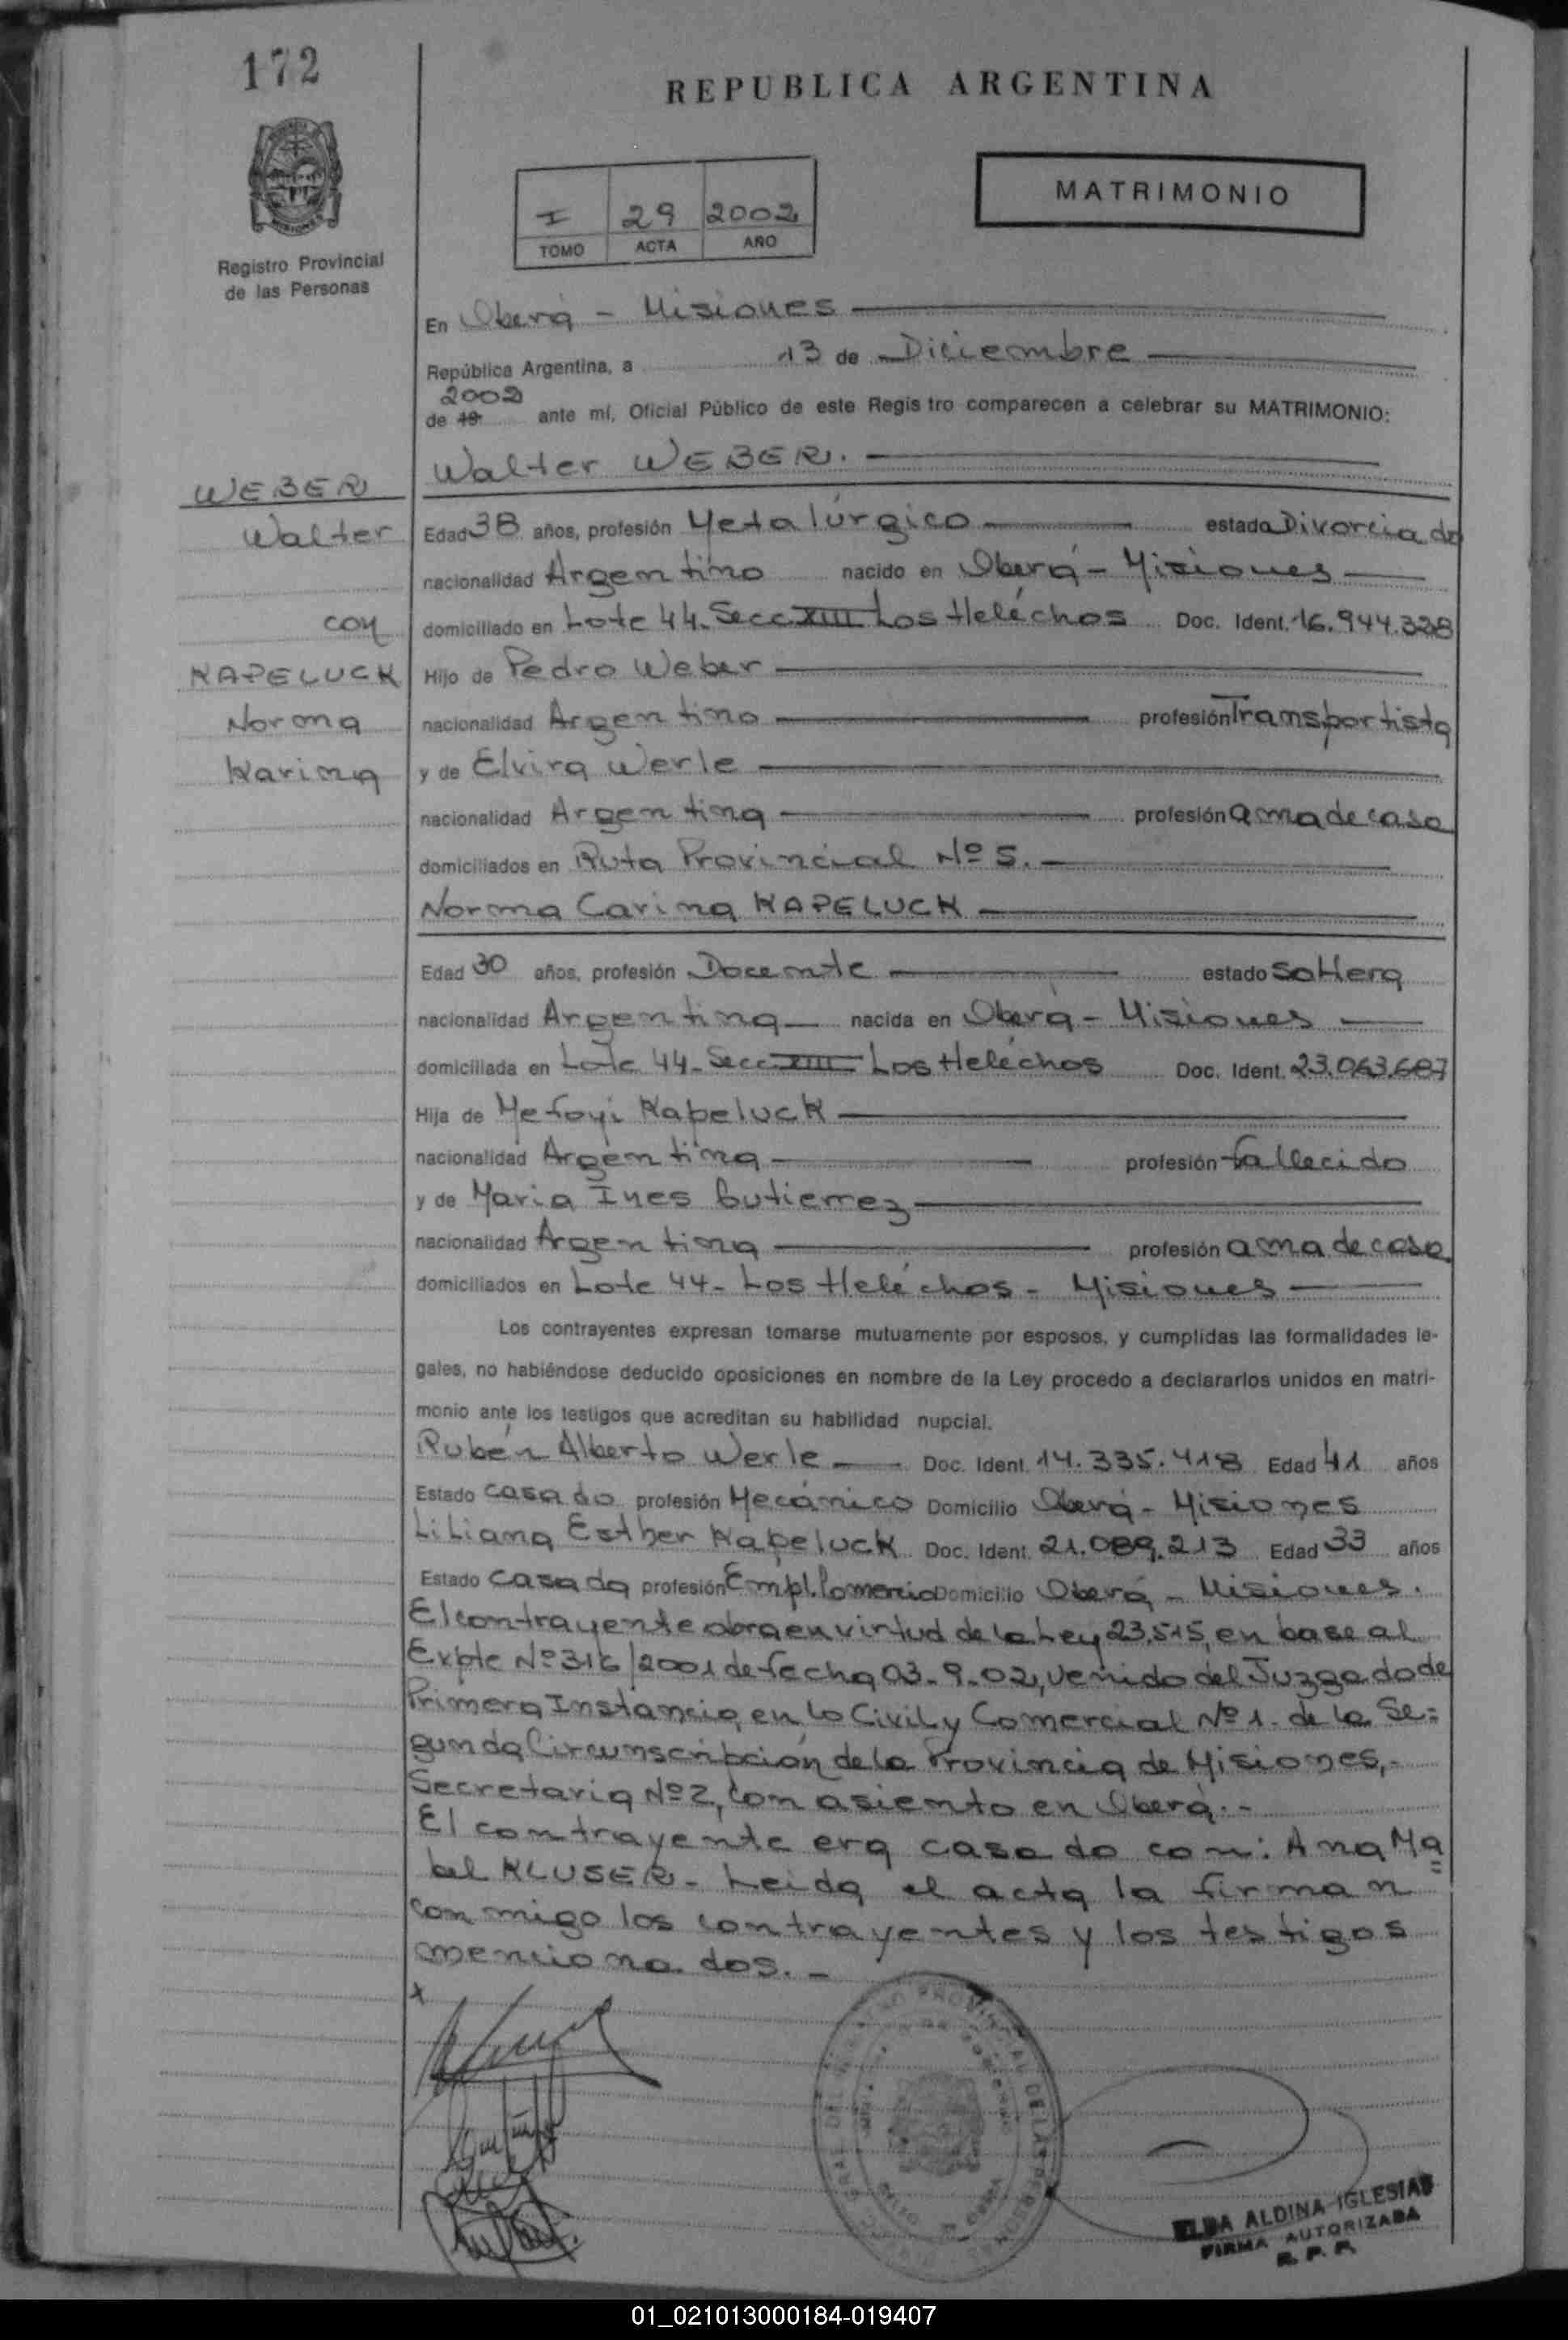 172
REPUBLICA ARGENTINA
I 29 2002
TOMO ACTA AÑO
MATRIMONIO
Registro Provincial
de las Personas
En Oberá - Misiones
República Argentina, a 13 de Diciembre
2002
de 19 ante mí, Oficial Público de este Regis tro comparecen a celebrar su MATRIMONIO:
Walter WEBER.
WEBER
Walter
con
KAPELUCK
Norma
Karina
Edad 38 años, profesión Metalúrgico estada Divorciado
nacionalidad Argentino nacido en Oberá - Misiones
domiciliado en Lote 44. Secc XIII Los Heléchos Doc. Ident. 16.944.328
Hijo de Pedro Weber
nacionalidad Argentino profesión Transportista
y de Elvira Werle
nacionalidad Argentina profesión ama de casa
domiciliados en Ruta Provincial Nº 5.
Norma Carina KAPELUCK
Edad 30 años, profesión Docente estado Soltera
nacionalidad Argentina nacida en Oberá - Misiones
domiciliada en Lote 44. Secc XIII Los Heléchos Doc. Ident. 23.063.687
Hija de Mefoyi Kapeluck
nacionalidad Argentina profesión fallecido
y de Maria Ines Gutierrez
nacionalidad Argentina profesión ama de casa
domiciliados en Lote 44 - Los Heléchos - Misiones
Los contrayentes expresan tomarse mutuamente por esposos, y cumplidas las formalidades le-
gales, no habiéndose deducido oposiciones en nombre de la Ley procedo a declararlos unidos en matri-
monio ante los testigos que acreditan su habilidad nupcial.
Rubén Alberto Werle Doc. Ident. 14.335.418 Edad 41 años
Estado casado profesión Mecánico Domicilio Oberá - Misiones
Liliana Esther Kapeluck Doc. Ident. 21.089.213 Edad 33 años
Estado casada profesión Empl. Comercio Domicilio Oberá - Misiones.
El contrayente obra en virtud de la Ley 23.515, en base al
Expte Nº 316/2001 de fecha 03-9-02, venido del Juzgado de
Primera Instancia, en lo Civil y Comercial Nº 1. de la Se=
gunda Circunscripción de la Provincia de Misiones,-
Secretaria Nº 2, con asiento en Oberá.-
El contrayente era casado con: Ana Ma=
bel KLUSER - Leida el acta la firman
conmigo los contrayentes y los testigos
mencionados. -
ELBA ALDINA IGLESIAS
FIRMA AUTORIZADA
R. P. P.
01_021013000184-019407